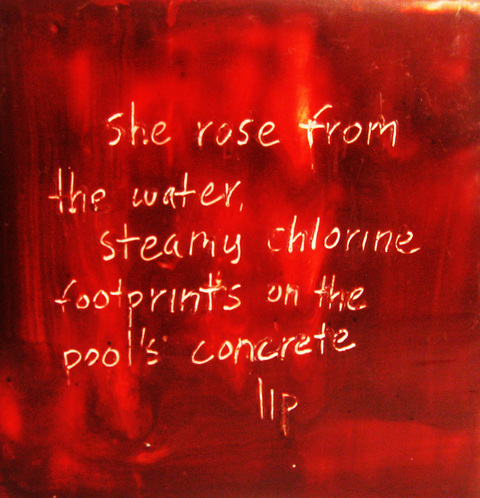 she rose from
the water,
steamy chlorine
footprints on the
pool's concrete
lip